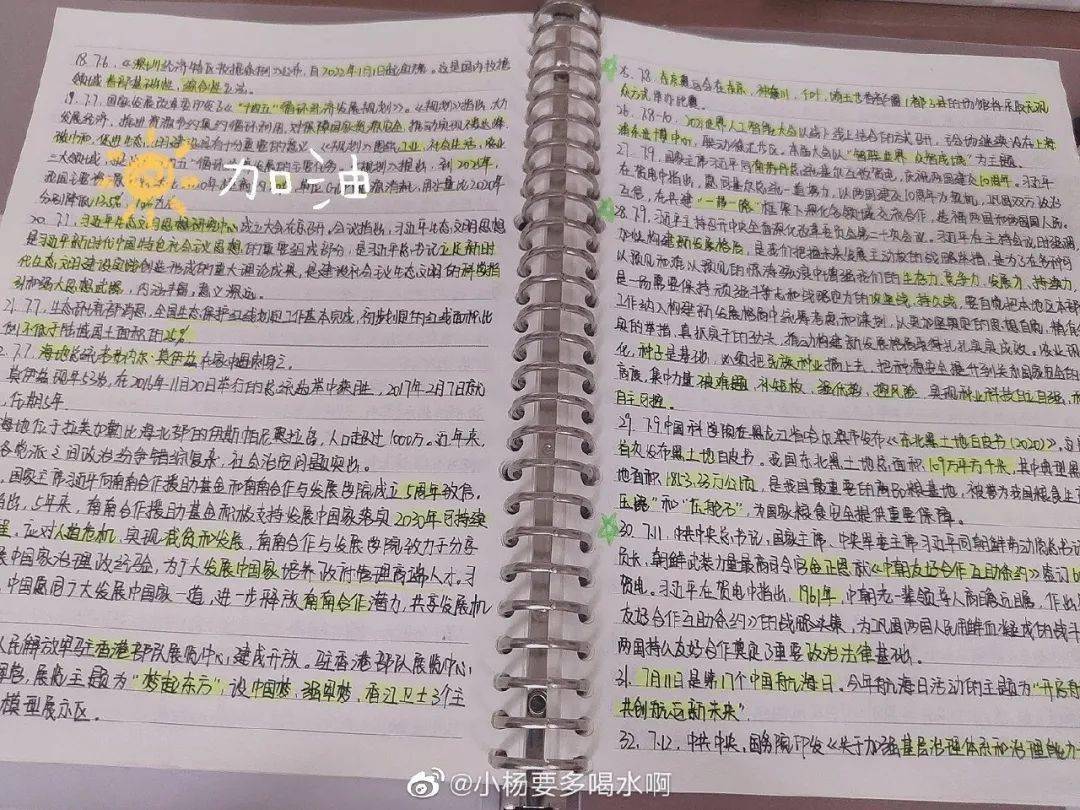 18. 7.6.《深圳经济特区数据条例》公布，自2022年1月1日起实施。这是国内数据
领域 首部基础性，综合性立法。
19. 7.7. 国家发展改革委印发了《“十四五”循环经济发展规划》。《规划》指出，大力
发展经济，推进资源节约集约循环利用，对保障国家资源安全，推动实现碳达峰、
碳中和，促进生态文明建设具有十分重要的意义。《规划》围绕工业，社会生活，农业
三大领域
到2025年，
用水量比2020年
分别降低13.5%
加油
20. 7.7. 习近平生态文明思想研究中心成立大会在京召开。会议指出，习近平生态文明思想
是习近平新时代中国特色社会主义思想的重要组成部分，是习近平总书记立足新时
代生态文明建设实践创造形成的重大理论成果，是建设社会主义生态文明的科学指
引和强大思想武器，内涵丰富，意义深远。
21. 7.7. 生态环境部消息，全国生态保护红线划定工作基本完成，初步划定的红线面积比
例不低于陆域国土面积的25%
2. 7.7. 海地总统若弗内尔·莫伊兹在家中遇刺身亡。
莫伊兹现年53岁，在2016年11月20日举行的总统选举中获胜，2017年2月7日就职
，任期5年
海地位于拉美加勒比海北部的伊斯帕尼奥拉岛，人口超过1000万。近年来，
各党派之间政治纷争错综复杂，社会治安问题突出。
国家主席习近平向南南合作援助基金和南南合作与发展学院成立5周年致信。
指出，5年来，南南合作援助基金积极支持发展中国家落实2030年可持续
程，应对人道危机，实现减贫和发展，南南合作与发展学院致力于分享
展中国家治理政经验，为广大发展中国家培养政府管理高端人才。习
，中国愿同广大发展中国家一道，进一步释放南南合作潜力，共享发展机
人民解放军驻香港部队展览中心，建成开放。驻香港部队展览中心，
展览主题为“梦起东方”，设中国梦，强军梦，香江卫士3个主
模型展示区。
25. 7.8. 东京奥运会在东京，神奈川，千叶，埼玉
众方式举办比赛
26. 7.8-10. 2021世界人工智能大会以线上线下结合的方式召开，
浦东世博中心，本届大会以“智联世界 众智成城”为主题
27. 7.9. 国家主席习近平同南苏丹总统基尔互致贺电，庆祝两国建交10周年。习近平
在贺电中指出，愿同基尔总统一道努力，以两国建交10周年为契机，巩固双方政治
互信，在共建“一带一路”框架下深化各领域交流合作，造福两国和两国人民。
28. 7.9. 习近平主持召开中央全面深化改革委员会第二十次会议。习近平在主持会议时强调
加快构建新发展格局，是我们把握未来发展主动权的战略举措，是为了在各种可
以预见和难以预见的惊涛骇浪中增强我们的生存力，竞争力，发展力，持续力，
是一场需要保持顽强斗志和战略定力的攻坚战，持久战，要自觉把本地区本部
工作纳入构建新发展格局中统筹考虑和谋划，以更加坚决的思想自觉，精准
实的举措，真抓实干的劲头，推动构建新发展格局取得扎扎实实成效。农业现
化，种子是基础，必须把民族种业搞上去，把种源安全提升到关系国家安全的
高度，集中力量破难题，补短板，强优势，控风险，实现种业科技自立自强，种
自主可控。
29. 7.9 中国科学院在黑龙江省哈尔滨市发布《东北黑土地白皮书（2020）》，
首次发布黑土地白皮书。我国东北黑土地总面积109万平方千米，其中典型黑
地面积1853.33万公顷，是我国最重要的商品粮基地，被誉为我国粮食生
压舱”和“压舱石”，为国家粮食安全提供重要保障。
30. 7.11. 中共中央总书记，国家主席，中央军委主席习近平同朝鲜劳动党总书记
员长，朝鲜武装力量最高司令官金正恩就《中朝友好合作互助条约》签订60
贺电。习近平在贺电中指出，1961年，中朝老一辈领导人高瞻远瞩，作出
友好合作互助条约》的战略决策，为巩固两国人民用鲜血凝成的战斗
两国持久友好合作奠定了重要政治法律基础。
31. 7月11日是第17个中国航海日。今年航海日活动的主题为“开启航
共创航运新未来”
32. 7.12. 中共中央，国务院印发《关于加强基层治理体系和治理能力
@小杨要多喝水啊